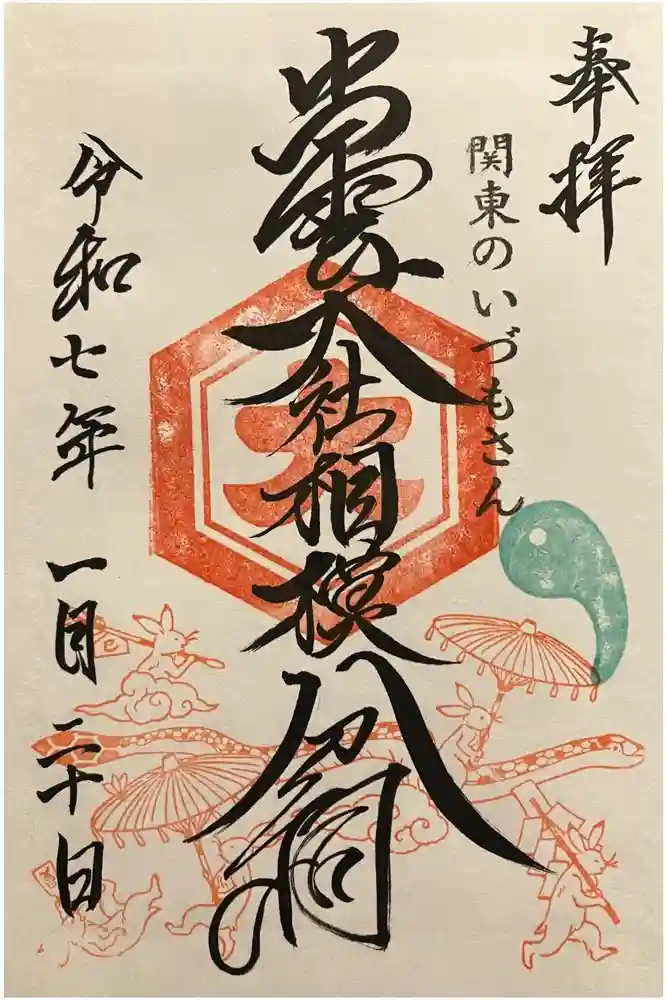 奉拝
関東のいづもさん
出雲大社相模分祠
大
令和七年 一月 二十日